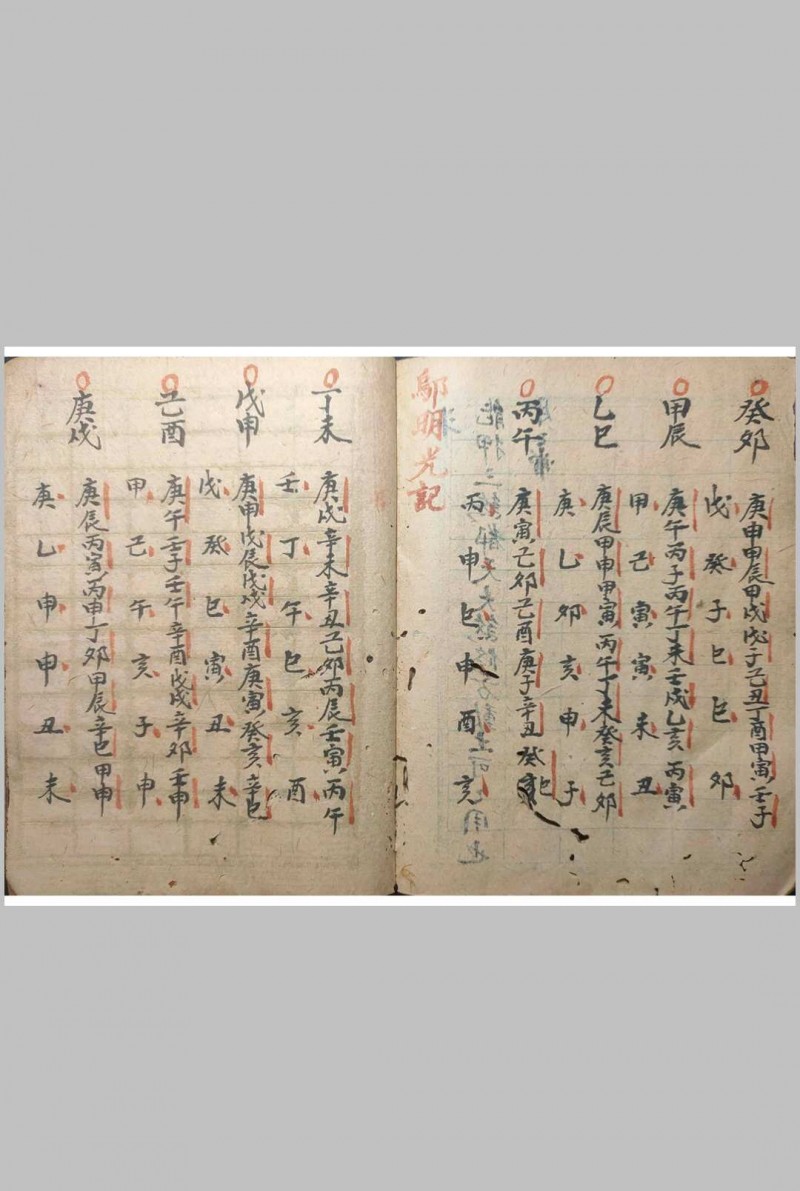 癸卯
庚申甲辰甲戌戊子己丑丁酉甲寅壬子
戊癸子巳巳卯
甲辰
庚午丙子丙午丁未壬戌乙亥丙寅
甲己寅寅未丑
乙巳
庚辰甲申甲寅丙午丁未癸亥己卯
庚乙卯亥申子
丙午
庚寅己卯己酉庚子辛丑癸
丙申巳申酉亥
鄔明光記
丁未
庚戌辛未辛丑己卯丙辰壬寅丙午
壬丁午巳亥酉
戊申
庚申戊辰戊戌辛酉庚寅癸亥辛巳
戊癸巳寅丑未
己酉
庚午壬子壬午辛酉戊戌辛卯壬申
甲己午亥子申
庚戌
庚辰丙寅丙申丁卯甲辰辛巳甲申
庚乙申申丑未